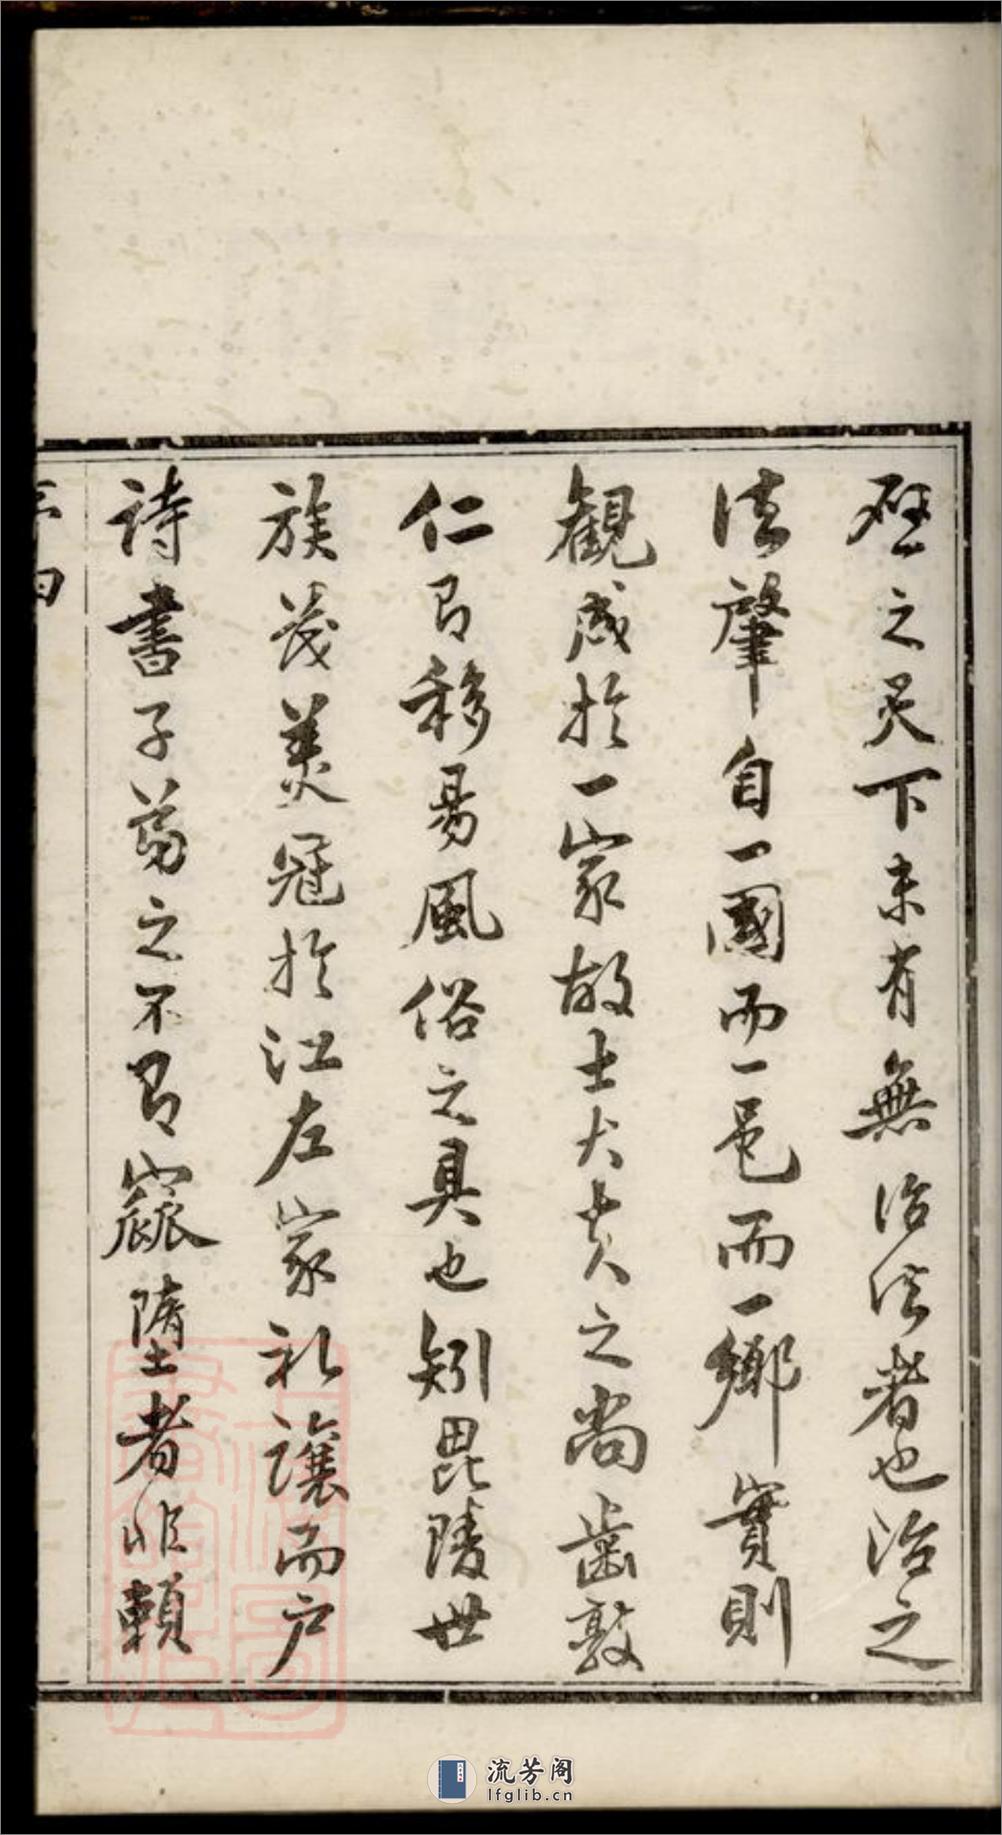 之天下未有無治法者也治之
法肇自一國而一邑而一鄉實則
觀成於一家故士大夫之尚齒敦
仁即移易風俗之具也矧毘陵世
族茂美冠於江左家礼讓而户
詩書子弟之不即窳墮者非賴
流芳阁
lfglib.cn